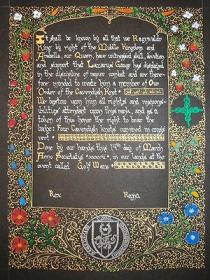 It shall be known by all that we Ragnvaldr
King by right of the Middle Kingdom and
our Queen, have witnessed skill, devotion
and honor that has displayed
in the discipline of armor combat and are there-
fore moved to make him a member of Our
Order of the Cavendish Knot
We bestow upon him all rights and responsi-
bilities attendant upon this rank, and as a
token of this honor the right to bear the
badge: Four Cavendish knots conjoined in annulo
vert
Done by our hands this 14th day of March
Anno Societatis in our lands at the
event called Golf Wars
Rex
Regina